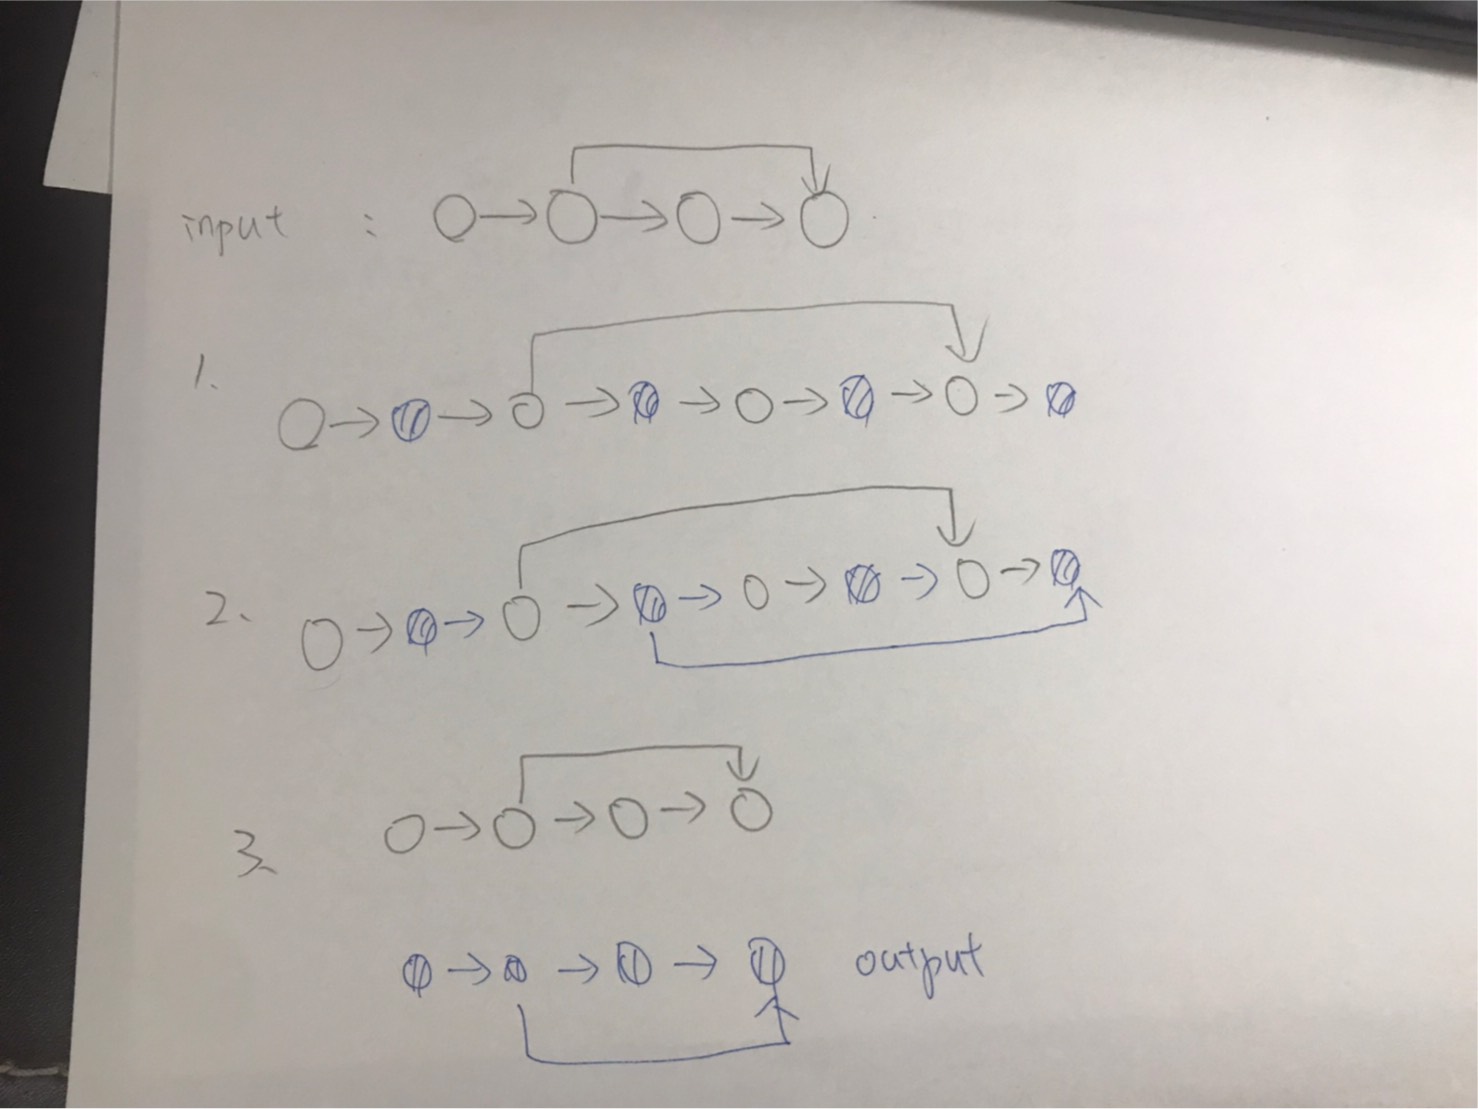 input :
1.
2、
3、
output